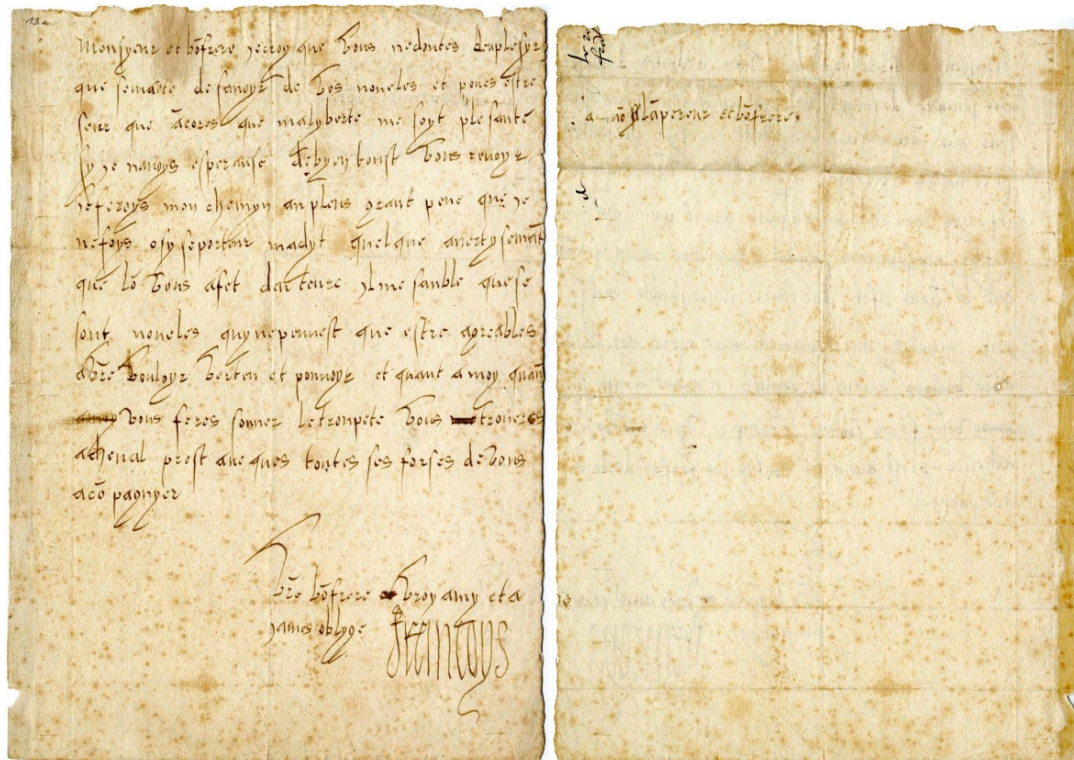 13 c
Monsyeur et bõfrere jecroy que vous nedoutes deuplesyr
que semaĩte desavoyr de vos noveles et poves estre
seur que ãcores que malyberte me soyt plesante
sy je navoys esperanse debyen toust vous revoyr
jeferoys mon chemyn an pleus grant pene que je
nefoys osy seporteur madyt quelque avertysemãt
que lõ vous afet ylme sanble quese
sont noveles quynepeuvest que estre agreables
a vr̃e vouloyr verteu et pouvoyr et quant a moy quan
vous feres sonner letronpete vous trouveres
acheval prest aveques toutes ses forses de vous
acõpagnyer
vr̃e bõfrere vroy amy et a
james oblyge Francoys
a lãpereur et bõfrere